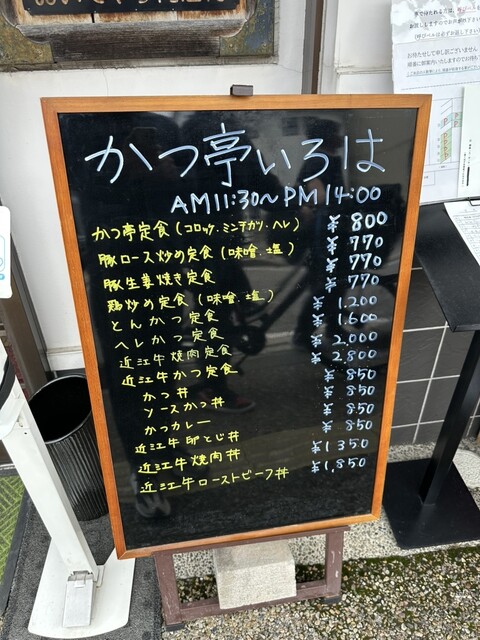 かつ亭いろは
AM11:30～PM14:00
かつ亭定食(コロッケ.ミンチカツ.ヘレ) ¥800
豚ロース炒め定食(味噌.塩) ¥770
豚生姜焼き定食 ¥770
鶏炒め定食(味噌.塩) ¥770
とんかつ定食 ¥1,200
ヘレかつ定食 ¥1,600
近江牛焼肉定食 ¥2,000
近江牛かつ定食 ¥2,800
かつ丼 ¥850
ソースかつ丼 ¥850
かつカレー ¥850
近江牛卵とじ丼 ¥850
近江牛焼肉丼 ¥1350
近江牛ローストビーフ丼 ¥1,850
お待たせして申し訳ございません